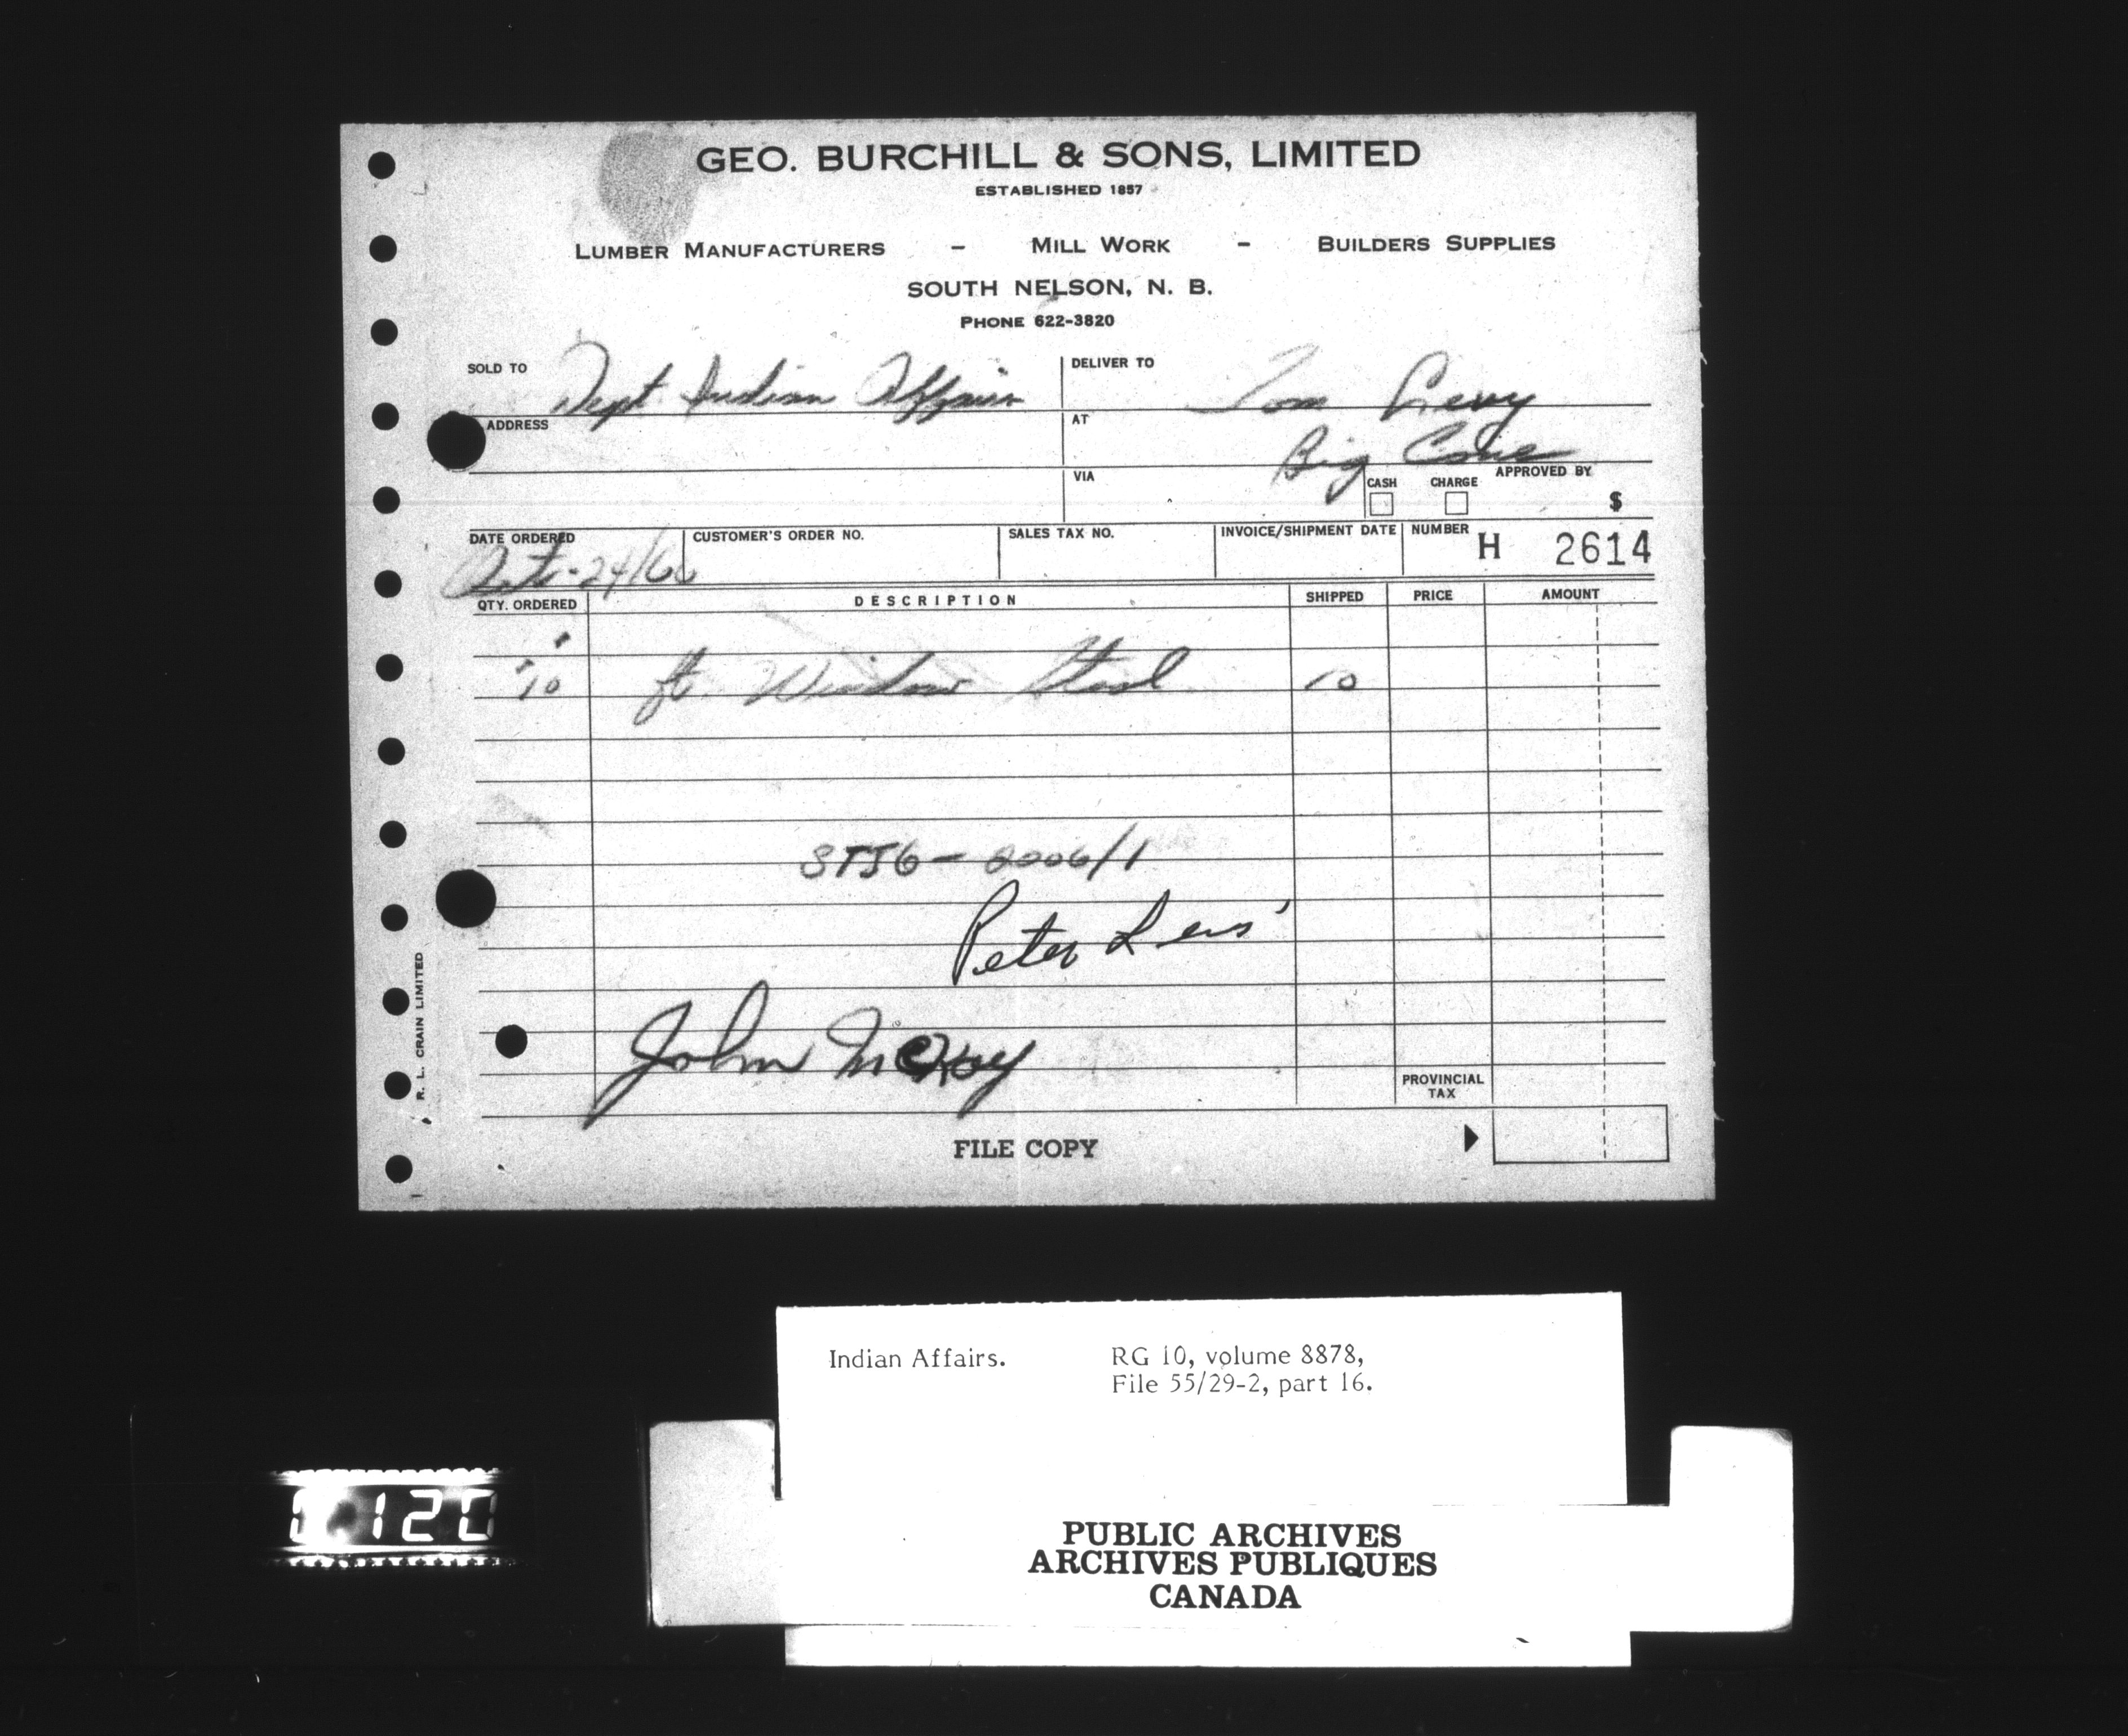 GEO. BURCHILL & SONS, LIMITED
ESTABLISHED 1857
LUMBER MANUFACTURERS - MILL WORK - BUILDERS SUPPLIES
SOUTH NELSON, N. B.
PHONE 622-3820
SOLD TO Dept. Indian Affairs DELIVER TO Tom
ADDRESS AT Big Cove
VIA CASH CHARGE APPROVED BY $
DATE ORDERED CUSTOMER'S ORDER NO. SALES TAX NO. INVOICE/SHIPMENT DATE NUMBER H 2614
24/66
QTY. ORDERED DESCRIPTION SHIPPED PRICE AMOUNT
10 ft. Window Stool 10
2006/1
Peter
John McKay
PROVINCIAL TAX
FILE COPY
R. L. CRAIN LIMITED
Indian Affairs. RG 10, volume 8878,
File 55/29-2, part 16.
120
PUBLIC ARCHIVES
ARCHIVES PUBLIQUES
CANADA